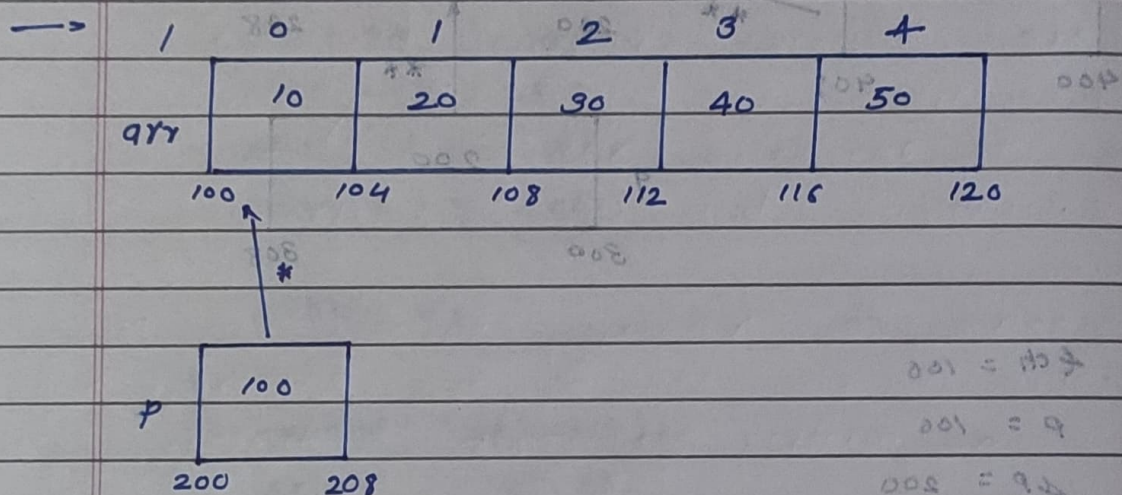 1 0 1 2 3 4
10 20 30 40 50
arr
100 104 108 112 116 120
*
100
p
200 208